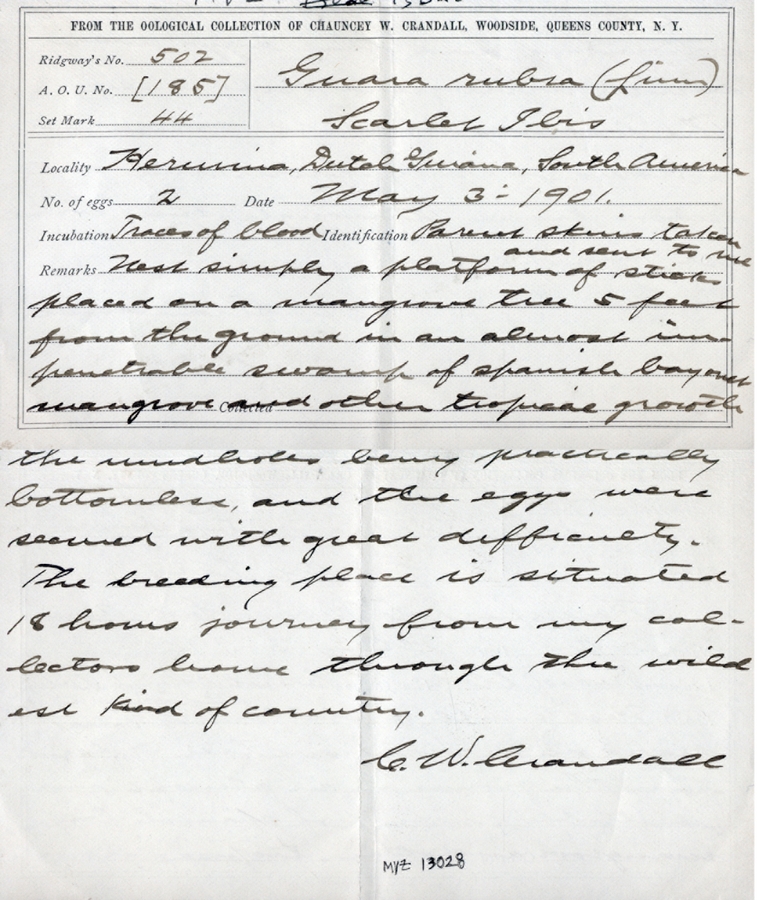 FROM THE OOLOGICAL COLLECTION OF CHAUNCEY W. CRANDALL, WOODSIDE, QUEENS COUNTY, N. Y.
Ridgway's No. 502
A. O. U. No. [185]
Set Mark 44
Guara rubra (Linn)
Scarlet Ibis
Locality Herminia, Dutch Guiana, South America
No. of eggs 2 Date May 3 - 1901.
Incubation Traces of blood Identification Parent skins taken
and sent to me
Remarks Nest simply a platform of sticks
placed on a mangrove tree 5 feet
from the ground in an almost im-
penetrable swamp of spanish bayonet
mangrove and other tropical growth
Collected
the mudholes being practically
bottomless, and the eggs were
secured with great difficulty.
The breeding place is situated
18 hours journey from my col-
lectors home through the wild
est kind of country.
C. W. Crandall
MVZ 13028